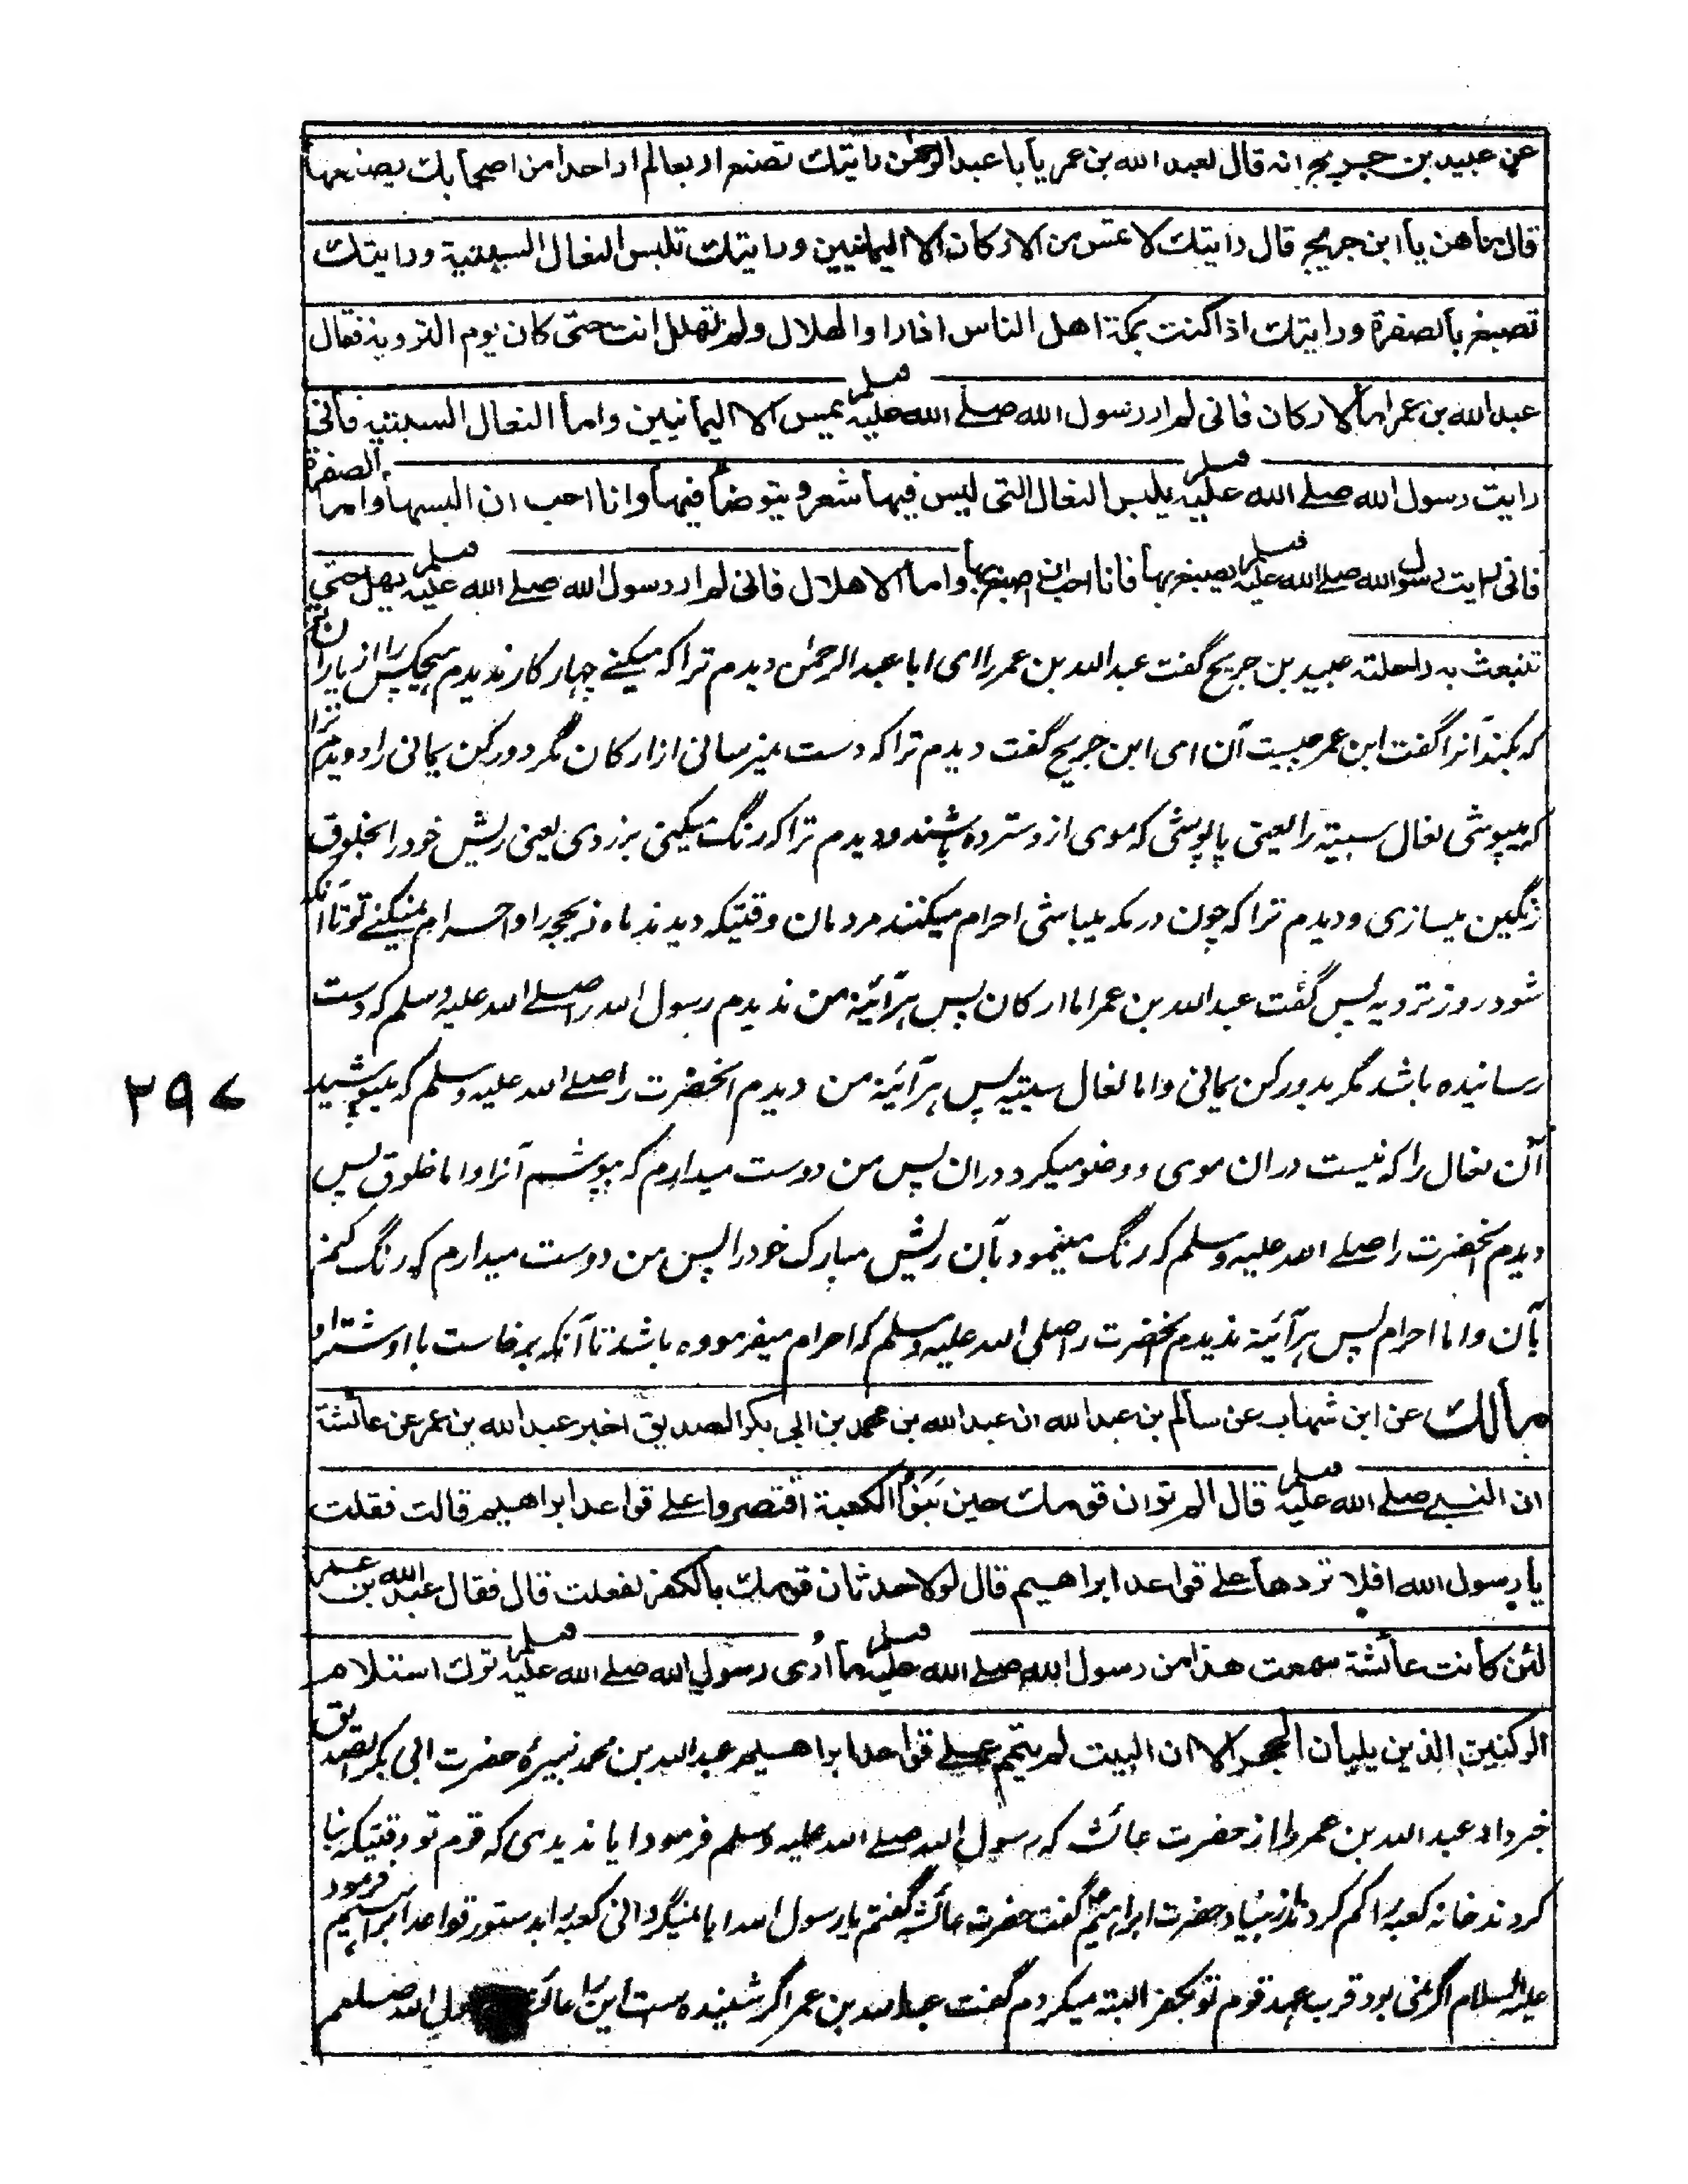 عن عبيد بن جريج انه قال لعبد الله بن عمر يا ابا عبد الرحمن رايتك تصنع اربعا لم ار احدا من اصحابك يصنعها
قال ما هن يا ابن جريج قال رايتك لا تمس من الاركان الا اليمانيين ورايتك تلبس النعال السبتية ورايتك
تصبغ بالصفرة ورايتك اذا كنت بمكة اهل الناس اذا راوا الهلال ولم تهلل انت حتى كان يوم التروية فقال
عبد الله بن عمر اما الاركان فانى لم ار رسول الله صلے الله عليه وسلم يمس الا اليمانيين واما النعال السبتية فانى
رايت رسول الله صلے الله عليه وسلم يلبس النعال التى ليس فيها شعر ويتوضأ فيها وانا احب ان البسها واما الصفرة
فانى رايت رسول الله صلے الله عليه وسلم يصبغ بها فانا احب ان اصبغ بها واما الاهلال فانى لم ار رسول الله صلے الله عليه وسلم يهل حتى
تنبعث به راحلته عبید بن جریج گفت عبد الله بن عمر را ای ابا عبد الرحمن دیدم ترا که میکنے چهار کار ندیدم هیچکس را از یاران تو
که بکند آنرا گفت ابن عمر چیست آن ای ابن جریج گفت دیدم ترا که دست نمیرسانی از ارکان مگر دو رکن یمانی را و دیدم ترا
که میپوشی نعال سبتیه را یعنی پاپوشی که موی از و سترده باشند و دیدم ترا که رنگ میکنی بزردی یعنی ریش خود را بخلوق
رنگین میسازی و دیدم ترا که چون در مکه میباشی احرام میکنند مردمان وقتیکه دیدند ماه ذیحجه را و احرام نمیکنے تو تا آنکه
شود روز ترویه پس گفت عبد الله بن عمر اما ارکان پس هرآئینه من ندیدم رسول الله را صلے الله علیه وسلم که دست
رسانیده باشد مگر بدو رکن یمانی و اما نعال سبتیه پس هرآئینه من دیدم آنحضرت را صلے الله علیه وسلم که میپوشید
آن نعال را که نیست دران موی و وضو میکرد دران پس من دوست میدارم که بپوشم آنرا و اما خلوق پس
دیدم آنحضرت را صلے الله علیه وسلم که رنگ مینمود بآن ریش مبارک خود را پس من دوست میدارم که رنگ کنم
بآن و اما احرام پس هرآئینه ندیدم آنحضرت را صلی الله علیه وسلم که احرام میفرموده باشد تا آنکه برخاست با او شتر او
مالك عن ابن شهاب عن سالم بن عبد الله ان عبد الله بن محمد بن ابى بكر الصديق اخبر عبد الله بن عمر عن عائشة
ان النبے صلے الله عليه وسلم قال الم ترى ان قومك حين بَنَوُا الكعبة اقتصروا على قواعد ابراهيم قالت فقلت
يا رسول الله افلا تردها على قواعد ابراهيم قال لولا حدثان قومك بالكفر لفعلت قال فقال عبد الله بن عمر
لئن كانت عائشة سمعت هذا من رسول الله صلے الله عليه وسلم ما اُرى رسول الله صلے الله عليه وسلم ترك استلام
الركنين الذين يليان الحجر الا ان البيت لم يتمم على قواعد ابراهيم عبد الله بن محمد نبیرهٔ حضرت ابی بکر الصدیق
خبر داد عبد الله بن عمر را از حضرت عائشه که رسول الله صلے الله علیه وسلم فرمود ایا ندیدی که قوم تو وقتیکه بنا
کردند خانه کعبه را کم کردند از بنیاد حضرت ابراهیم گفت حضرت عائشه گفتم یا رسول الله ایا نمیگردانی کعبه را بدستور قواعد ابراهیم فرمود
علیه السلام اگر نمی بود قرب عهد قوم تو بکفر البته میکردم گفت عبد الله بن عمر اگر شنیده است این را عائشه الله صلعم
۲۹۷